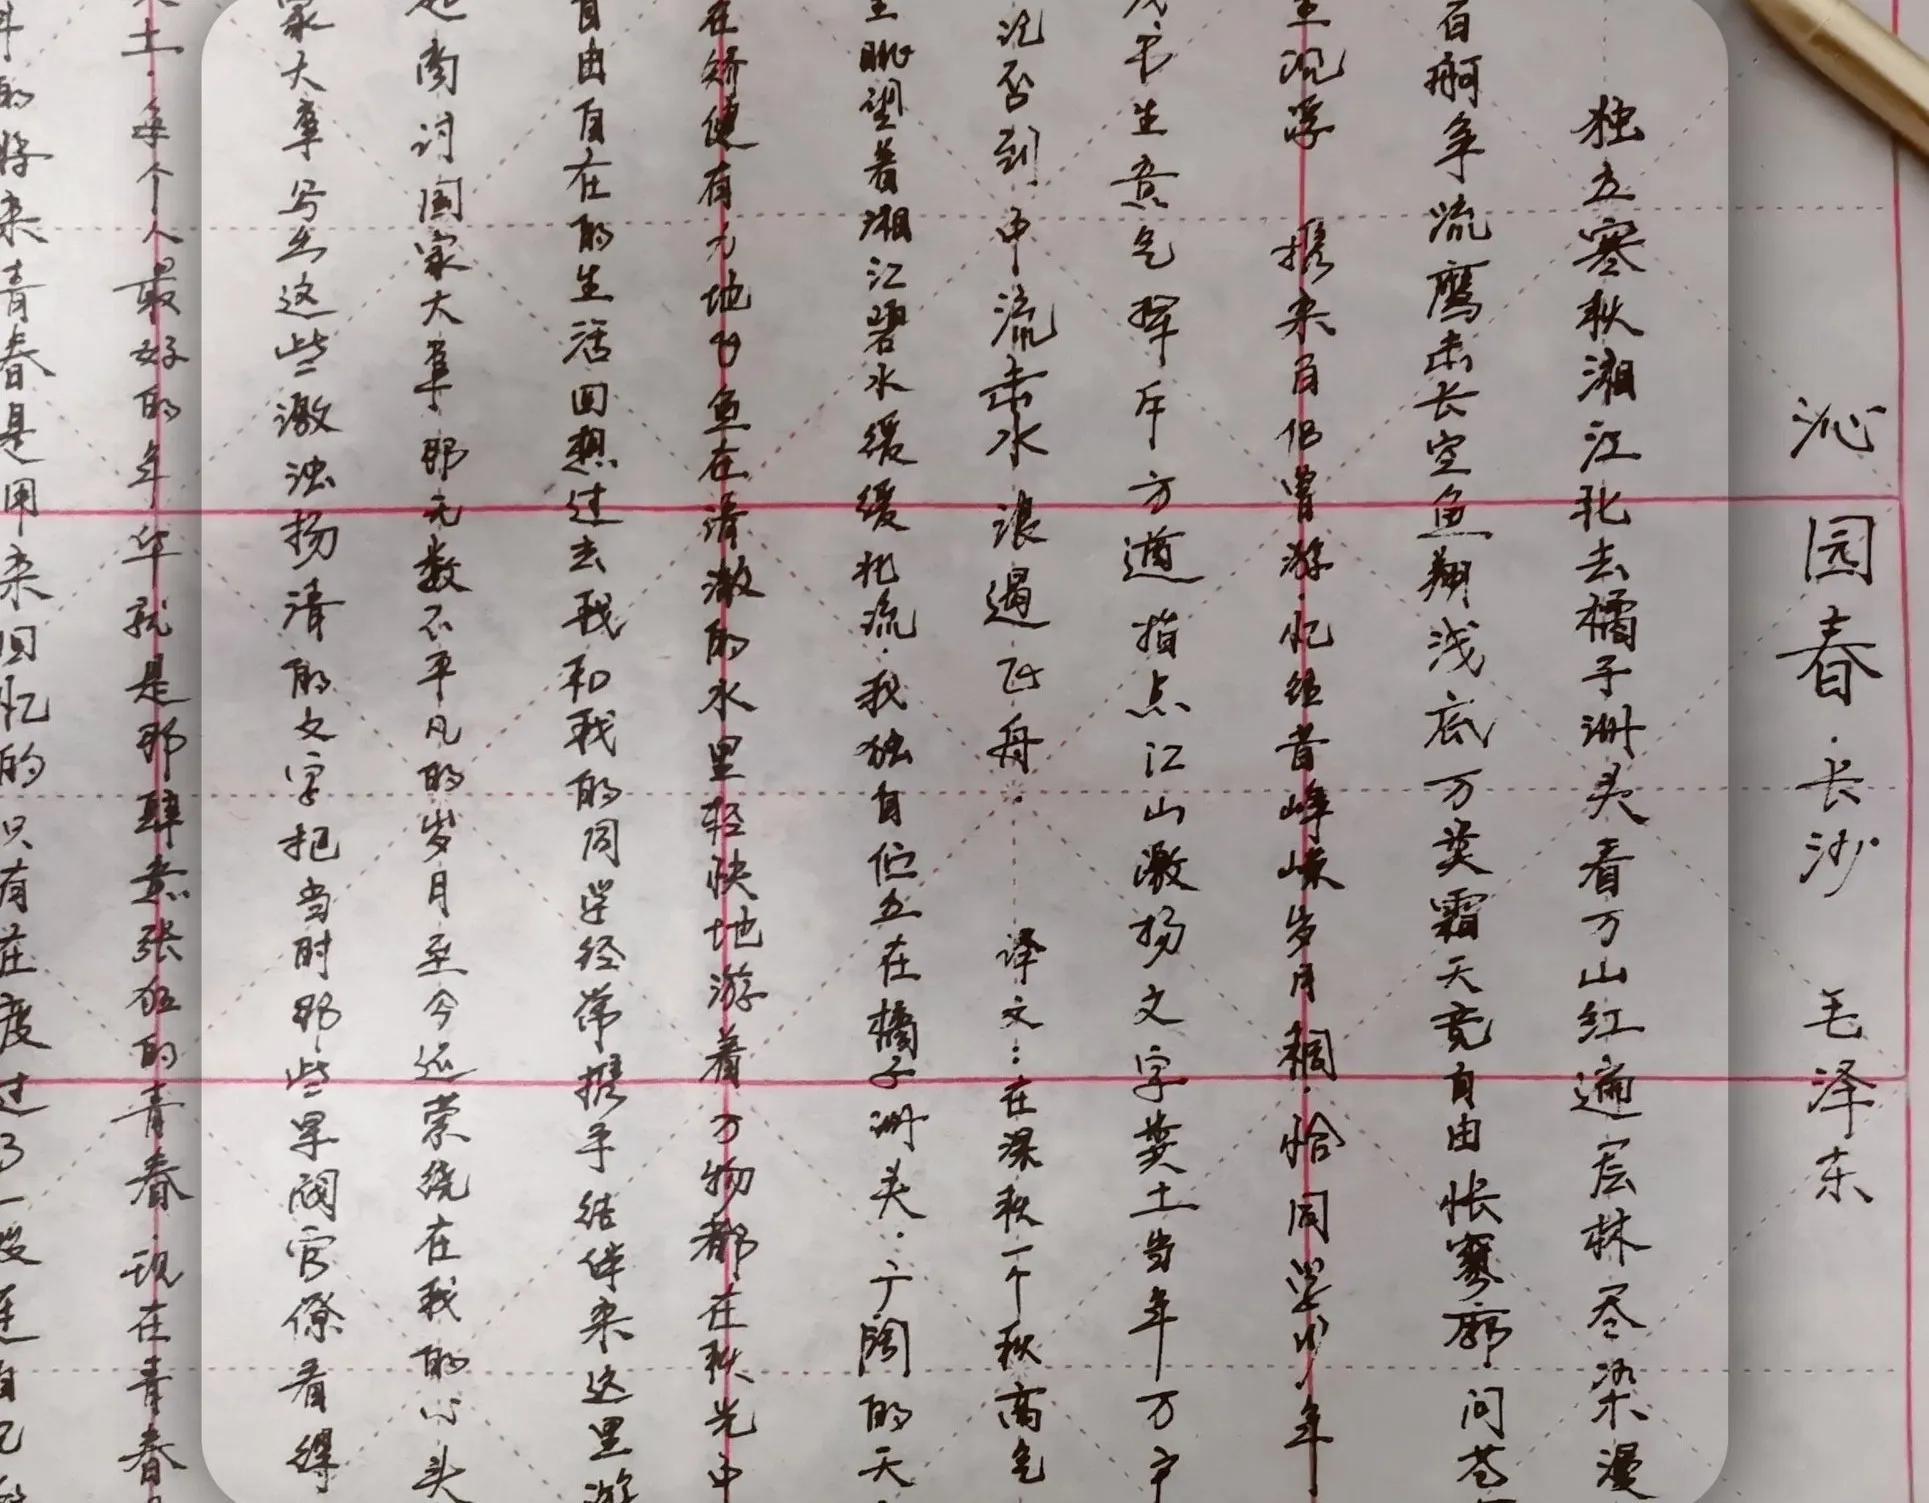 沁园春·长沙 毛泽东
独立寒秋湘江北去橘子洲头看万山红遍层林尽染漫
百舸争流鹰击长空鱼翔浅底万类霜天竞自由怅寥廓问苍
主沉浮 携来百侣曾游·忆往昔峥嵘岁月稠·恰同学少年
茂书生意气挥斥方遒指点江山激扬文字粪土当年万户
记否到中流击水浪遏飞舟· 译文:在深秋一个秋高气
里眺望着湘江碧水缓缓北流·我独自伫立在橘子洲头·广阔的天
在矫健有力地飞鱼在清澈的水里轻快地游着万物都在秋光中
自由自在的生活回想过去我和我的同学经常携手结伴来这里游
起商讨国家大事那无数不平凡的岁月至今还萦绕在我的心头
家大事写出这些激浊扬清的文字把当时那些军阀官僚看得
土·每个人最好的年华就是那肆意张狂的青春·现在青春
的将来青春是用来回忆的只有在度过了一段